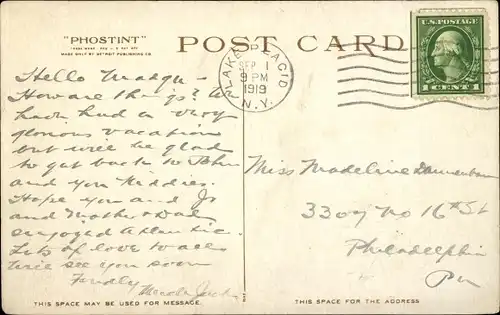 "PHOSTINT"
MADE ONLY BY DETROIT PUBLISHING CO.
POST CARD
LAKE PLACID
SEP 1
9 PM
1919
N.Y.
U.S. POSTAGE
1 CENT 1
Hello Madge -
How are things? We
have had a very
glorious vacation
but will be glad
to get back to Phila
and you kiddies.
Hope you and Jo
and Mother & Dad
enjoyed Atlantic.
Lots of love to all
will see you soon
Fondly
Miss Madeline Dannenbaum
3307 No 16th St
Philadelphia
Pa
THIS SPACE MAY BE USED FOR MESSAGE.
THIS SPACE IS FOR THE ADDRESS